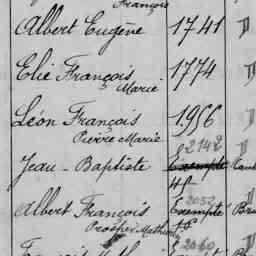 François
Albert Eugène 1741
Elie François 1774
Marie
Léon François 1956
Pierre Marie
2142
Jean-Baptiste Exempté
2052
Albert François Exempté
Prosper Mathurin
2060